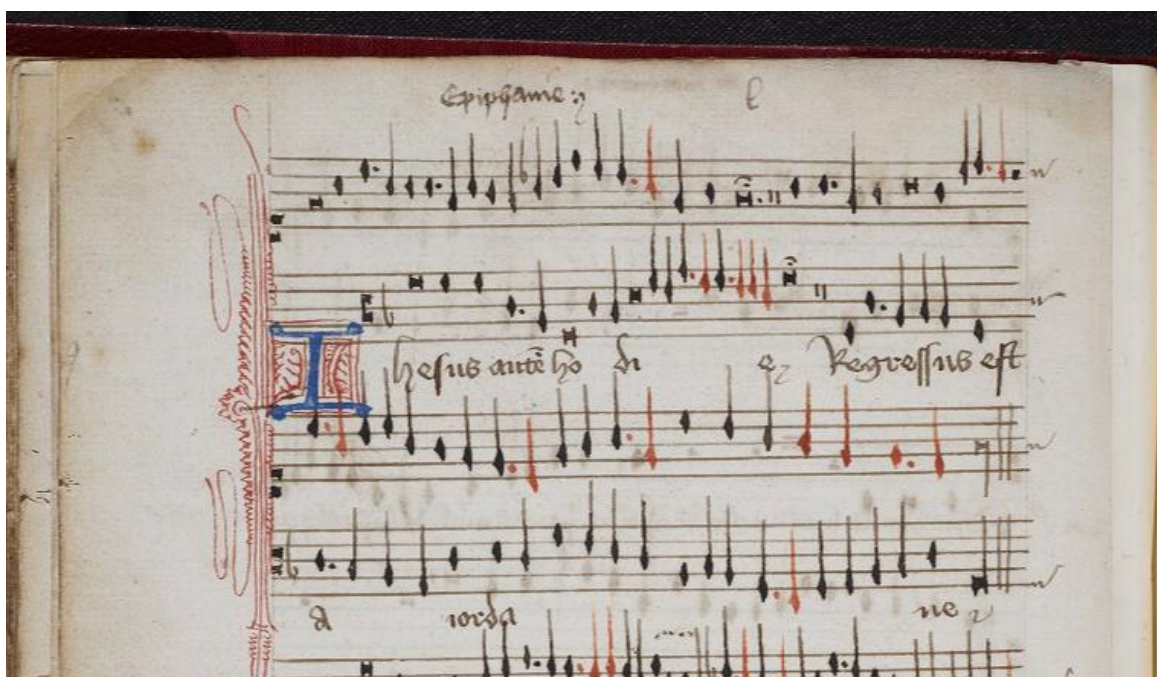 Epiphanie
Ihesus autē ho di e Regressus est
A iorda ne